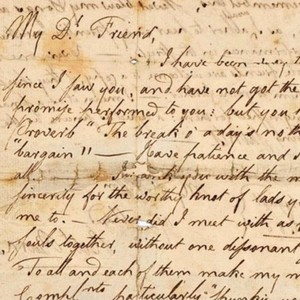 My Dr. Friend,
I have been
since I saw you, and have not got the
promise performed to you: but you
Proverb" "The break o' a day's no th
"bargain" — Have patience and
all — with the m
sincerity for "the worthy knot of lads y
me to. — Never did I meet with as
souls together, without one dissonant
To all and each of them make my m
Complnts particularly